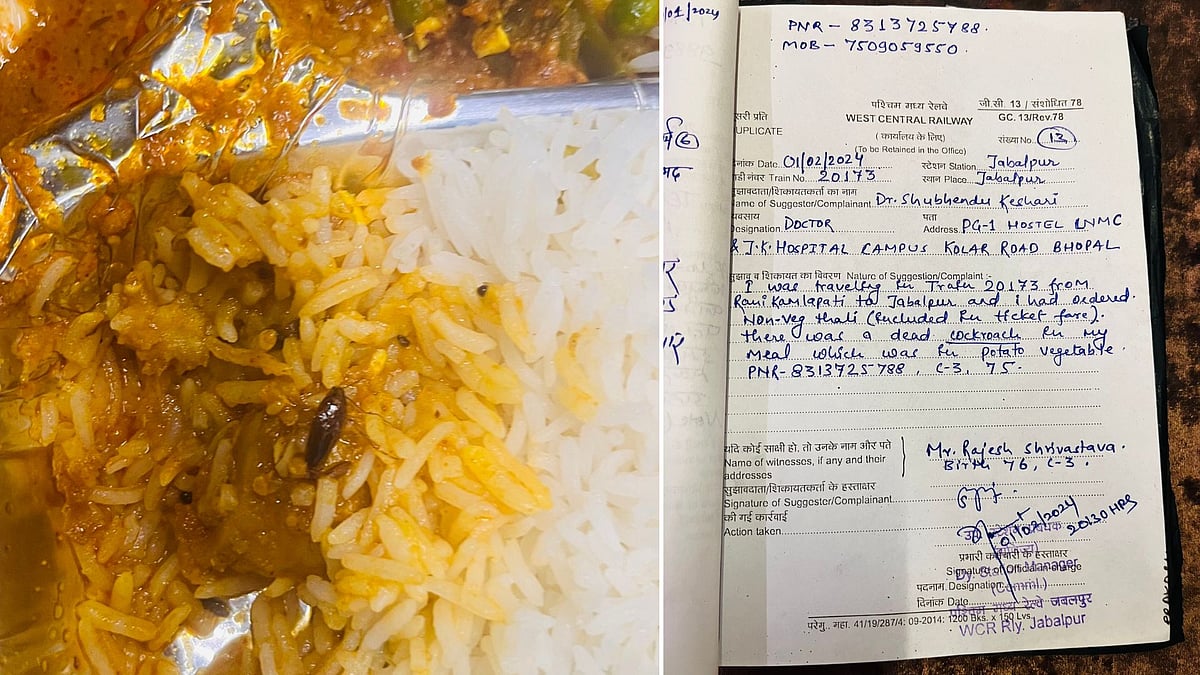 /01/2024
PNR - 8313725788.
MOB - 7509059550.
पश्चिम मध्य रेलवे
जी.सी. 13 / संशोधित 78
सरी प्रति
WEST CENTRAL RAILWAY
GC. 13/Rev.78
UPLICATE
( कार्यालय के लिए)
संख्या No. 13
(To be Retained in the Office)
नांक Date 01/02/2024 स्टेशन Station Jabalpur
डी नंबर Train No. 20173 स्थान Place Jabalpur
सुझावदाता/शिकायतकर्ता का नाम
ame of Suggester/Complainant Dr. Shubhendu Keshari
यवसाय पता
esignation DOCTOR Address PG-1 HOSTEL LNMC
& J.K. HOSPITAL CAMPUS KOLAR ROAD BHOPAL
सुझाव व शिकायत का विवरण Nature of Suggestion/Complaint :-
I was traveling in Train 20173 from
Rani Kamlapati to Jabalpur and i had ordered.
Non-veg thali (included in ticket fare).
there was a dead cockroach in my
Meal which was in potato vegetable.
PNR-8313725788, C-3, 75.
यदि कोई साक्षी हो, तो उनके नाम और पते
Name of witnesses, if any and their
addresses
Mr. Rajesh Shrivastava.
Birth 76, C-3.
सुझावदाता/शिकायतकर्ता के हस्ताक्षर
Signature of Suggester/Complainant
की गई कार्रवाई
Action taken
01/02/2024
20:30 HRS
प्रभारी कर्मचारी के हस्ताक्षर
Signature of Official in charge
Dy. Stn. Manager
पदनाम Designation
(Comml.)
दिनांक Date
पश्चिम मध्य रेलवे जबलपुर
WCR Rly. Jabalpur
परेगु.. महा. 41/19/287/4: 09-2014: 1200 Bks. x 150 Lvs.